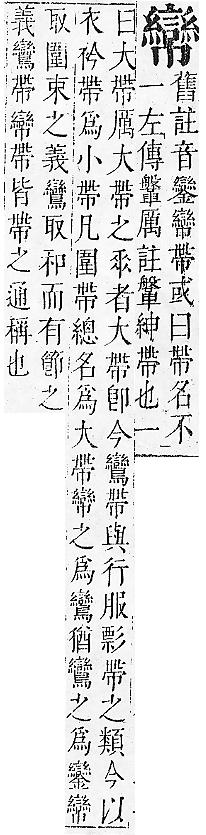 㡩
舊註音鑾㡩帶或曰帶名不
一左傳鞶厲註鞶紳帶也一
曰大帶厲大帶之垂者大帶卽今鸞帶與行服影帶之類今以
衣衿帶為小帶凡圍帶總名為大帶㡩之為鸞猶鸞之為鑾㡩
取圍束之義鸞取和而有節之
義鸞帶㡩帶皆帶之通稱也